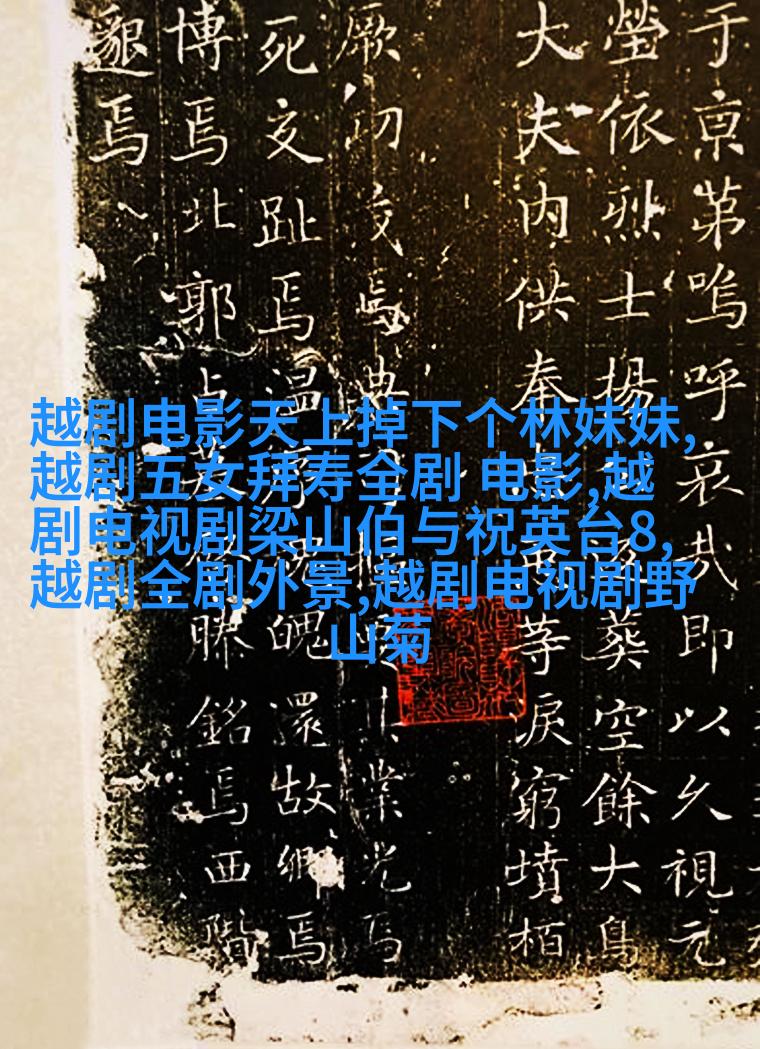 越剧电影天上掉下个林妹妹,
越剧五女拜寿全剧 电影,越
剧电视剧梁山伯与祝英台8,
越剧全剧外景,越剧电视剧野
山菊
于京苐嗚呼哀哉即以久視元
瑩依烈士揚葬空餘大鳥
大夫内供奉等淚窮墳栢
厥初焉典業光焉
死交趾焉温序魄還故鄉焉
博焉北郭占銘焉西階
邈焉